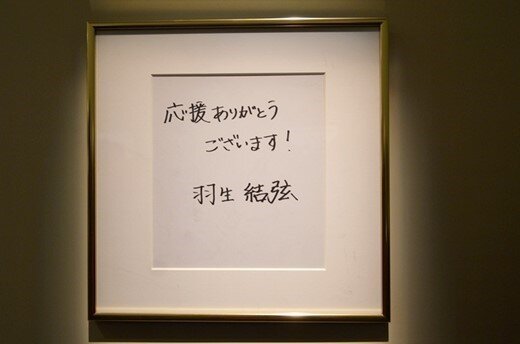 応援ありがとう
ございます!
羽生結弦